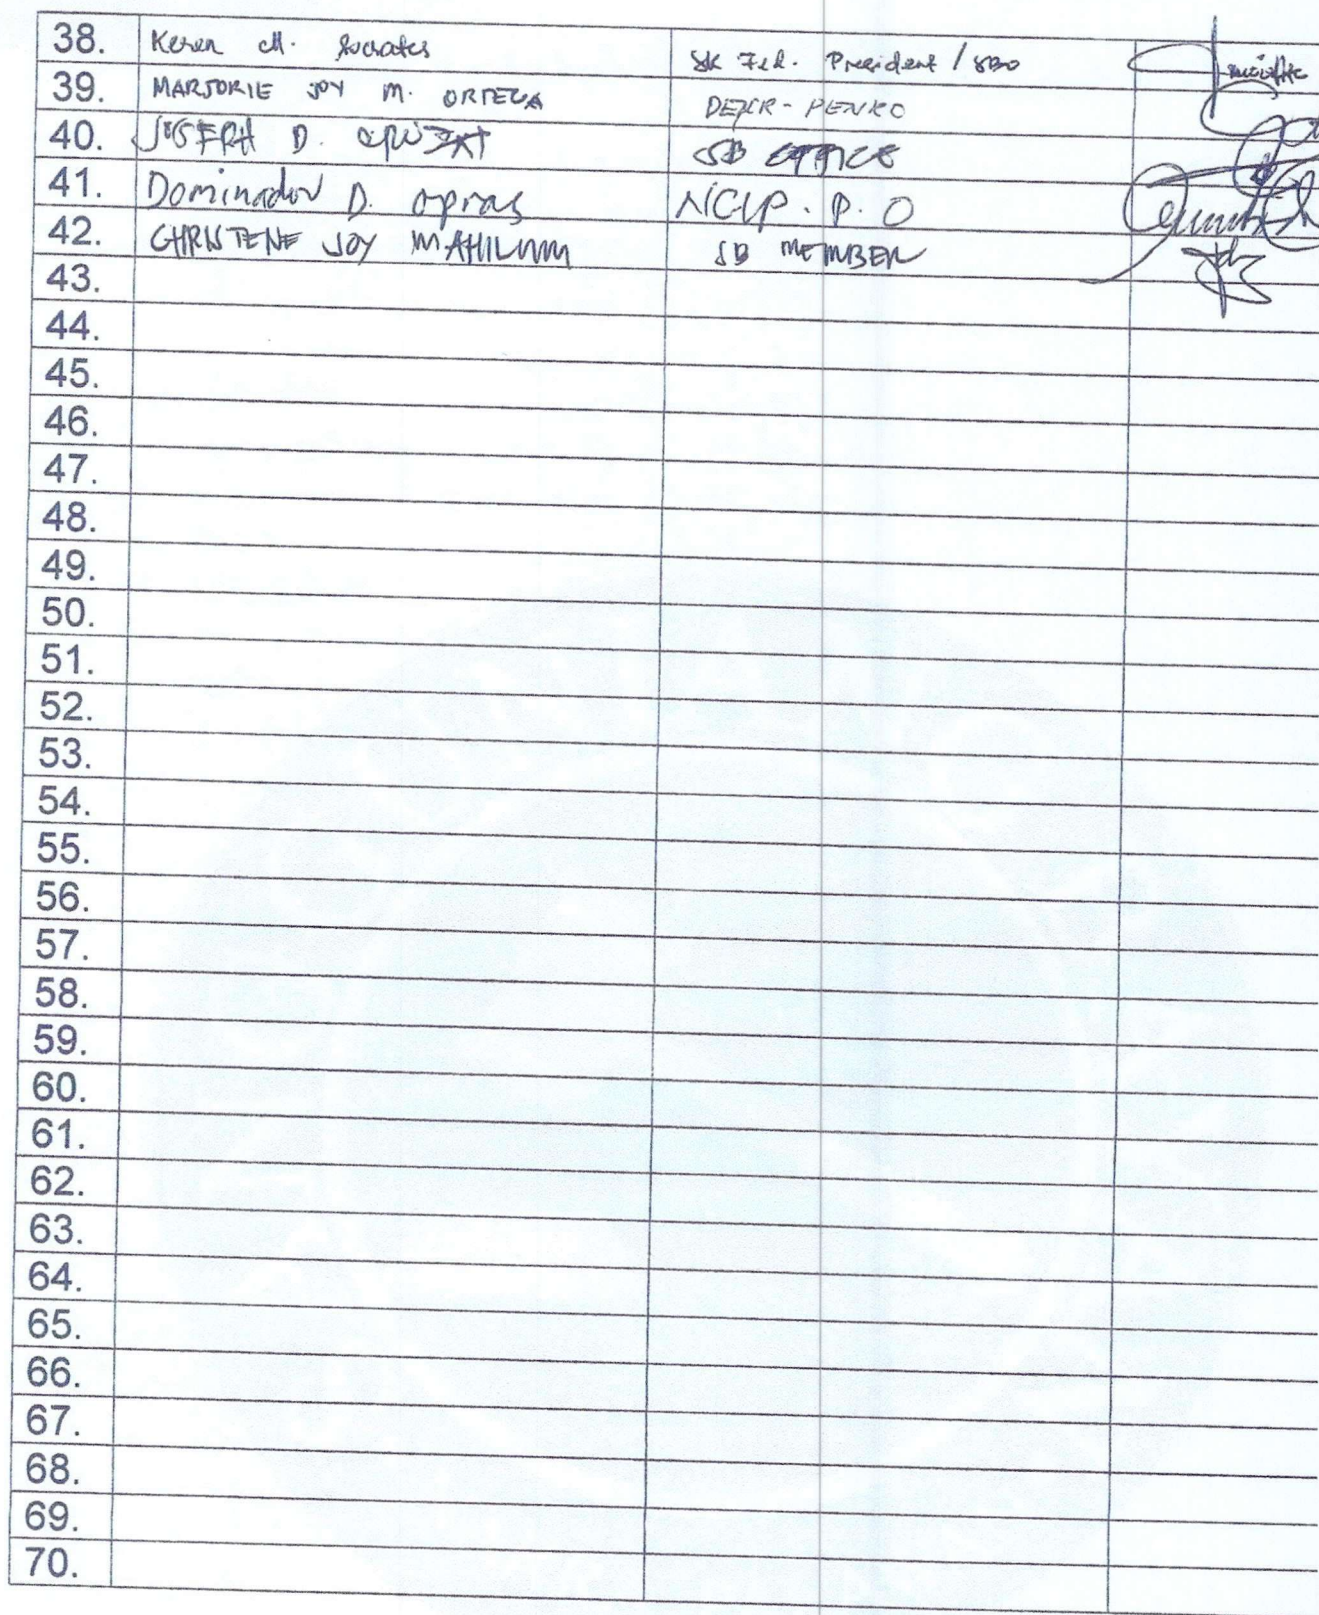 38. Keren M. Socrates SK Fed. President / SBO
39. MARJORIE JOY M. ORTEGA DENR - PENRO
40. JOSEPH D. SB OFFICE
41. Dominador D. opras NCIP. P. O
42. CHRISTENE JOY MAHILUM SB MEMBER
43.
44.
45.
46.
47.
48.
49.
50.
51.
52.
53.
54.
55.
56.
57.
58.
59.
60.
61.
62.
63.
64.
65.
66.
67.
68.
69.
70.